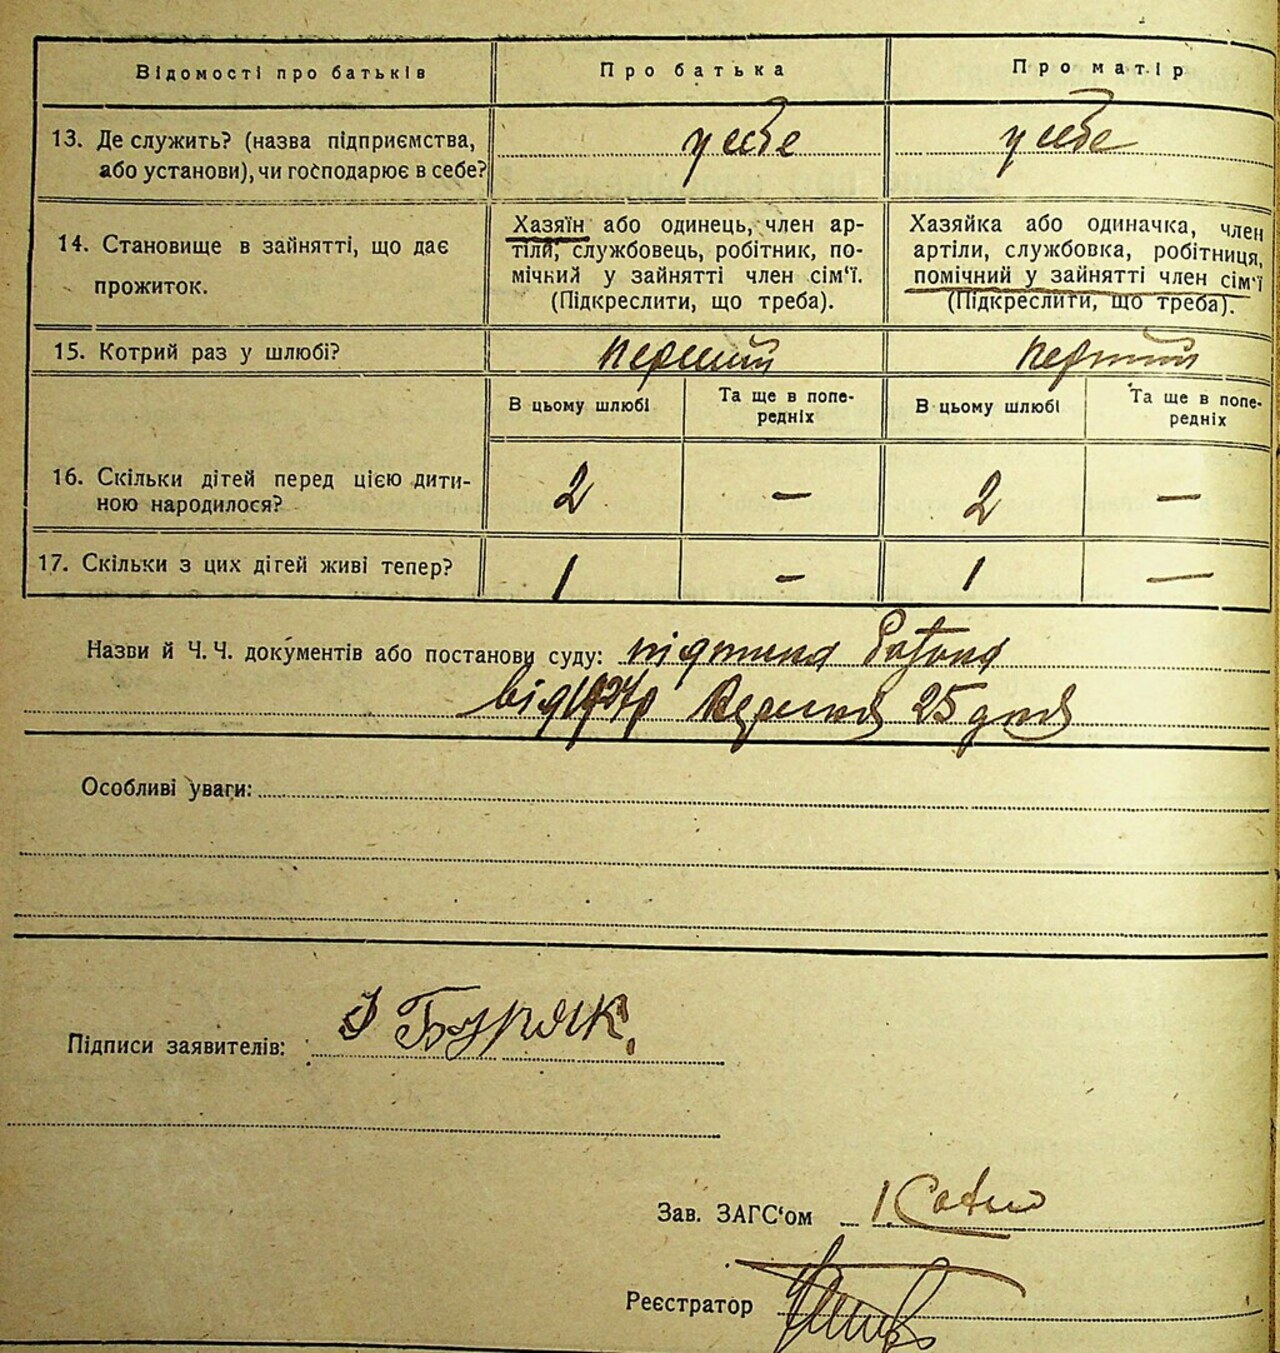 Відомості про батьків
Про батька
Про матір
13. Де служить? (назва підприємства,
або установи), чи господарює в себе?
у себе
у себе
14. Становище в зайнятті, що дає
прожиток.
Хазяїн або одинець, член ар-
тіли, службовець, робітник, по-
мічний у зайнятті член сім'ї.
(Підкреслити, що треба).
Хазяйка або одиначка, член
артіли, службовка, робітниця,
помічний у зайнятті член сім'ї
(Підкреслити, що треба).
15. Котрий раз у шлюбі?
перший
перший
В цьому шлюбі
Та ще в попе-
редніх
В цьому шлюбі
Та ще в попе-
редніх
16. Скільки дітей перед цією дити-
ною народилося?
2
—
2
—
17. Скільки з цих дітей живі тепер?
1
—
1
—
Назви й Ч. Ч. документів або постанови суду:
від 1924р Вересня 25 дня
Особливі уваги:
Підписи заявителів: Буряк
Зав. ЗАГС'ом
Реєстратор